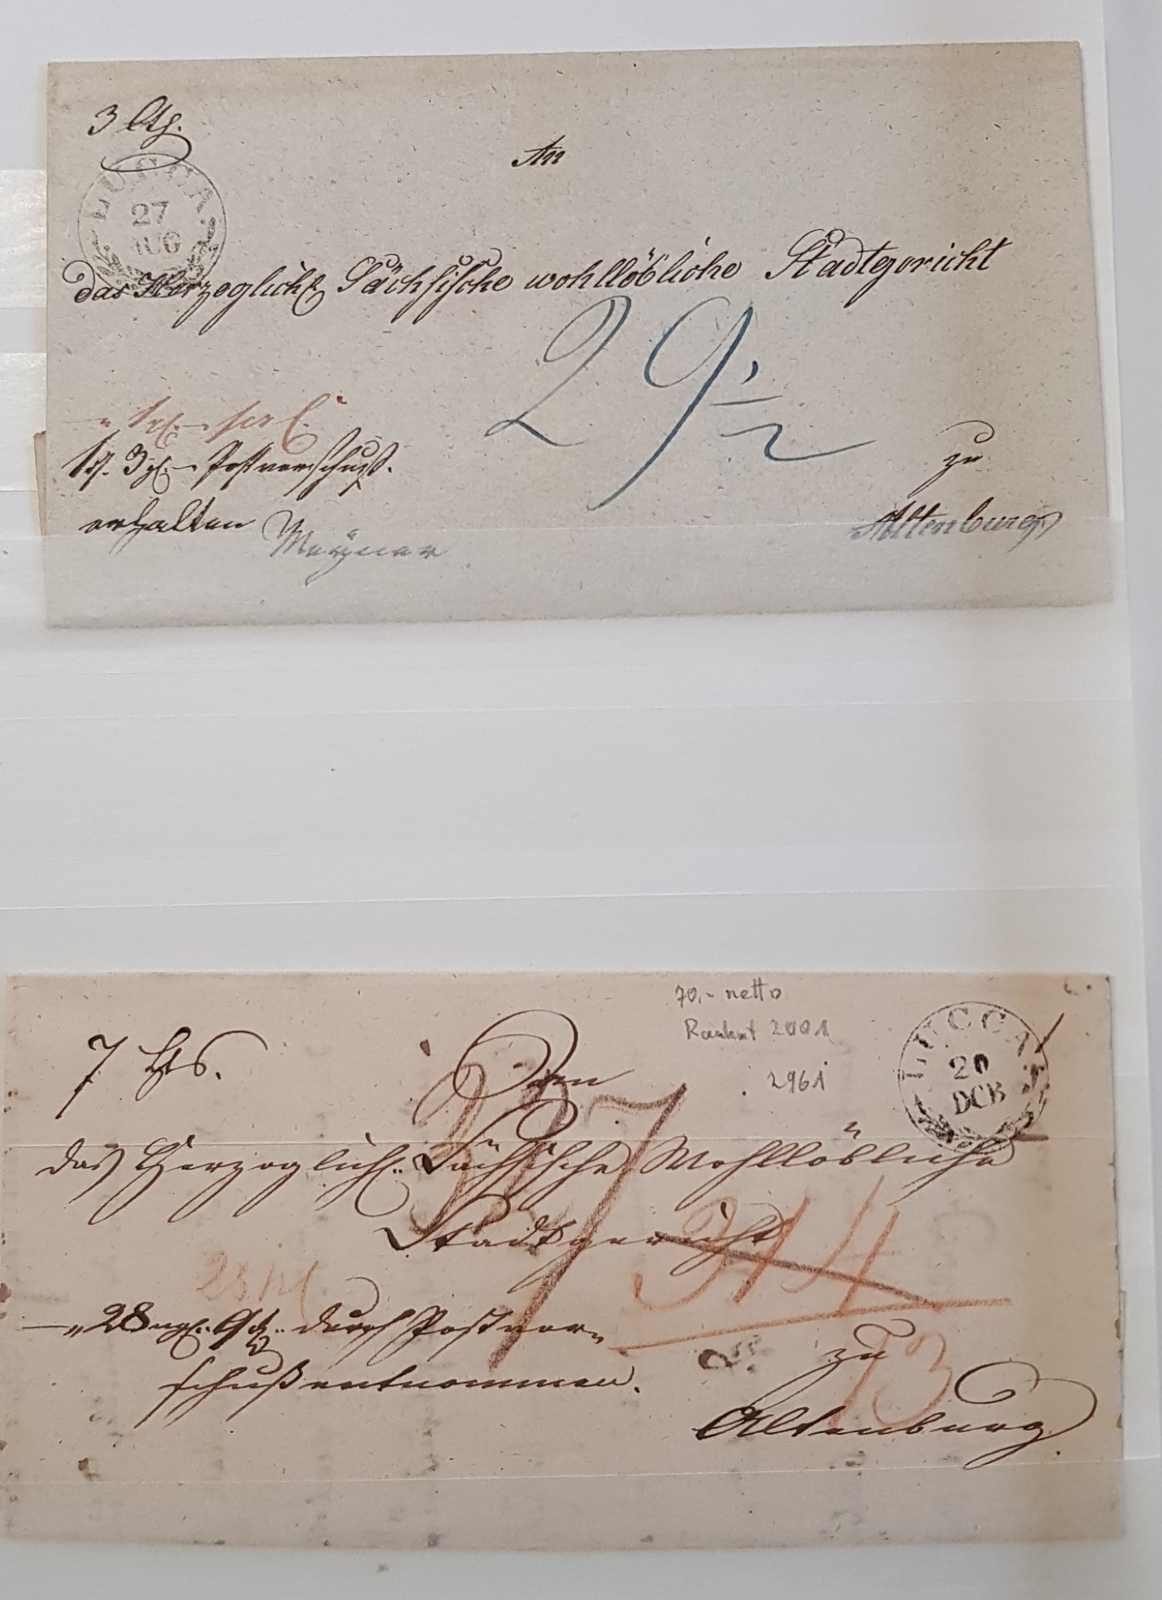 3 Ltg.
LUCCA
27
AUG
An
das Herzoglich Sächsische wohllöbliche Stadtgericht
29 1/2
Postvorschuß.
erhalten
zu
Altenburg
70,- netto
2001
2961
LUCCA
20
DCB
7 Lts.
das Herzoglich Sächsische Wohllöbliche
Stadtgericht
314
28 ngl. 9 durch Postvor-
schuß entnommen.
zu
13
Altenburg